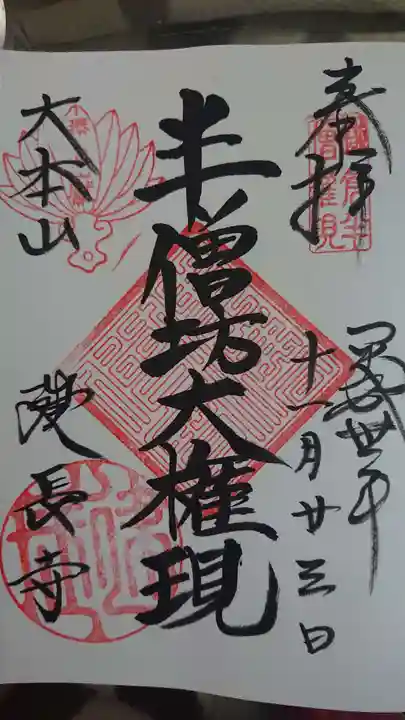 奉拝
平成卅年
十一月廿三日
半僧坊大権現
大本山
建長寺